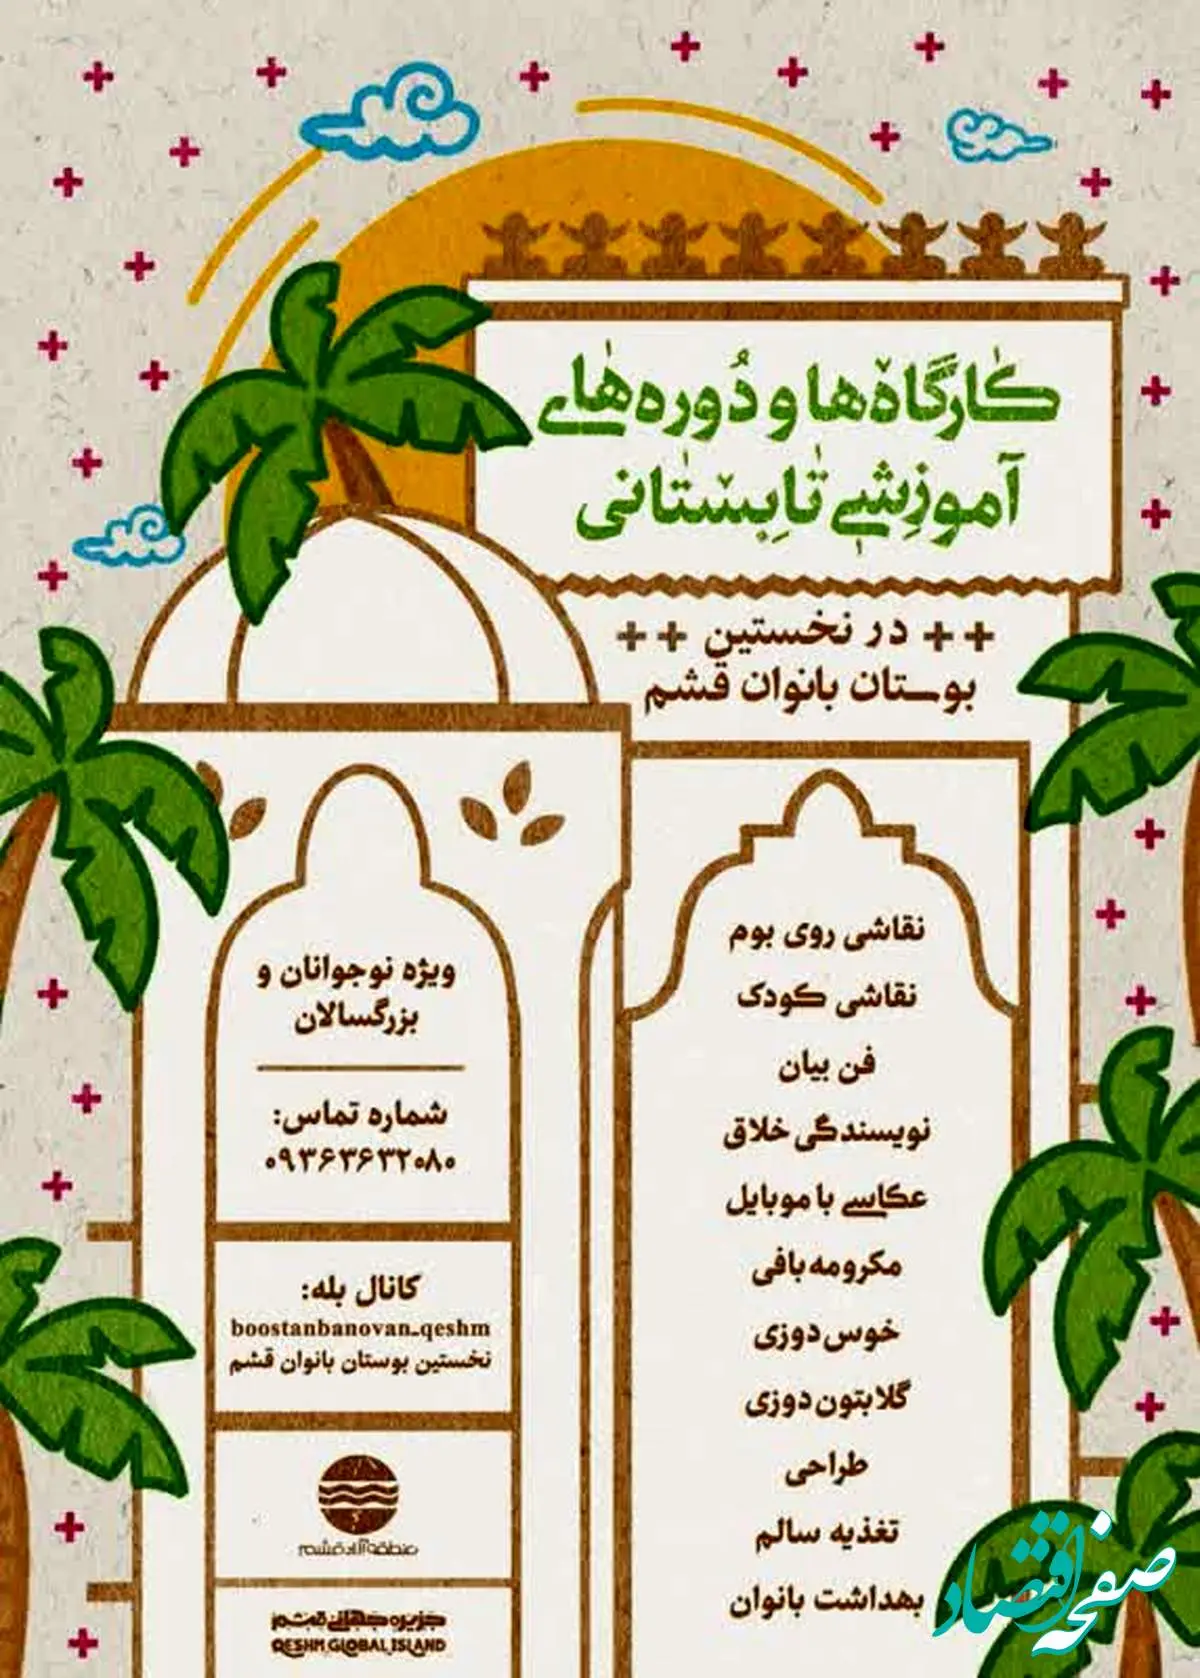 کارگاه‌ها و دُوره‌های
آموزِشی تابِستانی
++ در نخستین ++
بوستان بانوان قشم
نقاشی روی بوم
نقاشی کودک
فن بیان
نویسندگی خلاق
عکاسی با موبایل
مکرومه بافی
خوس دوزی
گلابتون دوزی
طراحی
تغذیه سالم
بهداشت بانوان
ویژه نوجوانان و
بزرگسالان
شماره تماس:
۰۹۳۶۳۶۳۲۰۸۰
کانال بله:
boostanbanovan_qeshm
نخستین بوستان بانوان قشم
منطقه آزاد قشم
جزیره جهانی قشم
QESHM GLOBAL ISLAND
صفحه اقتصاد